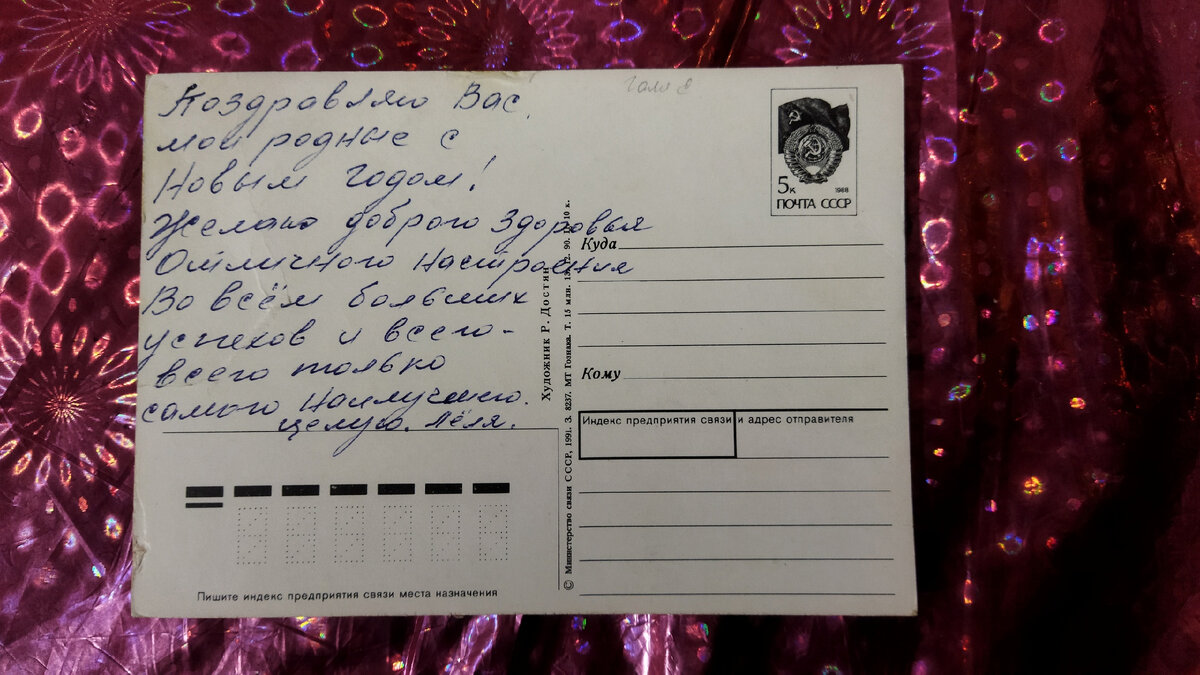 Поздравляю Вас,
мои родные с
Новым годом!
Желаю доброго здоровья
Отличного настроения
Во всём больших
успехов и всего-
всего только
самого наилучшего.
Целую. Лёля.
Пишите индекс предприятия связи места назначения
Художник Р. Достян
© Министерство связи СССР, 1991. З. 8237. МТ Гознака. Т. 15 млн.
90. 10 к.
Галя
5к
1988
ПОЧТА СССР
Куда
Кому
Индекс предприятия связи и адрес отправителя